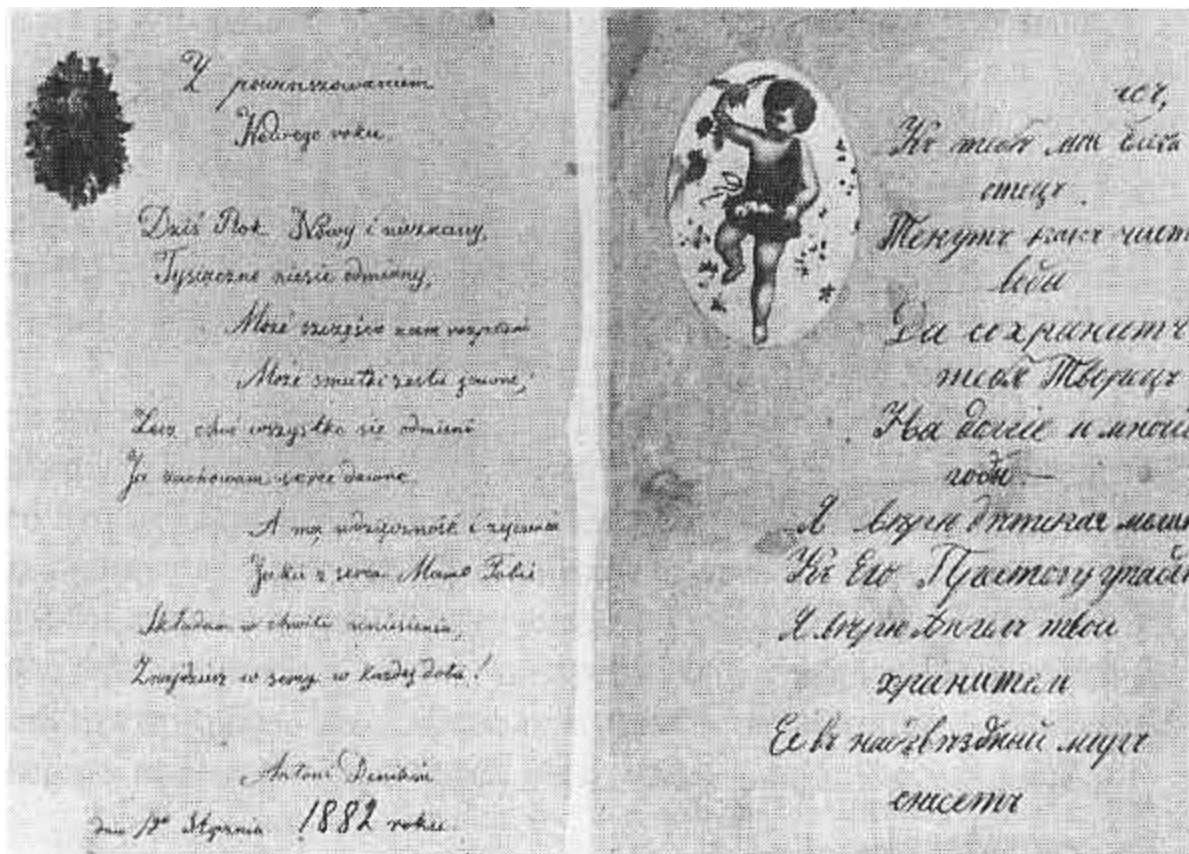 Z powinszowaniem
Nowego roku.
Dziś Rok Nowy i nieznany,
Tysiączne niesie odmiany,
Może szczęście nam rozpromi
Może smutki ześle gnuśne,
Lecz choć wszystko się odmieni
Ja zachowam serce dawne
A mą wdzięczność i życzenia
Jakie z serca Mamo Tobie
Składam w chwili uniesienia,
Znajdziesz w sercu w każdej dobie!
Antoni Denikin
dnia Stycznia 1882 roku.
Къ тебѣ мои
отецъ
Текутъ какъ чист
воды
Да сохранитъ
тебя Творецъ
На долгіе и многі
годы —
Я вѣрю дѣтская молит
Къ Его Престолу
Я вѣрю Ангелъ твои
хранитель
Ее въ надзвѣздный міръ
снесетъ